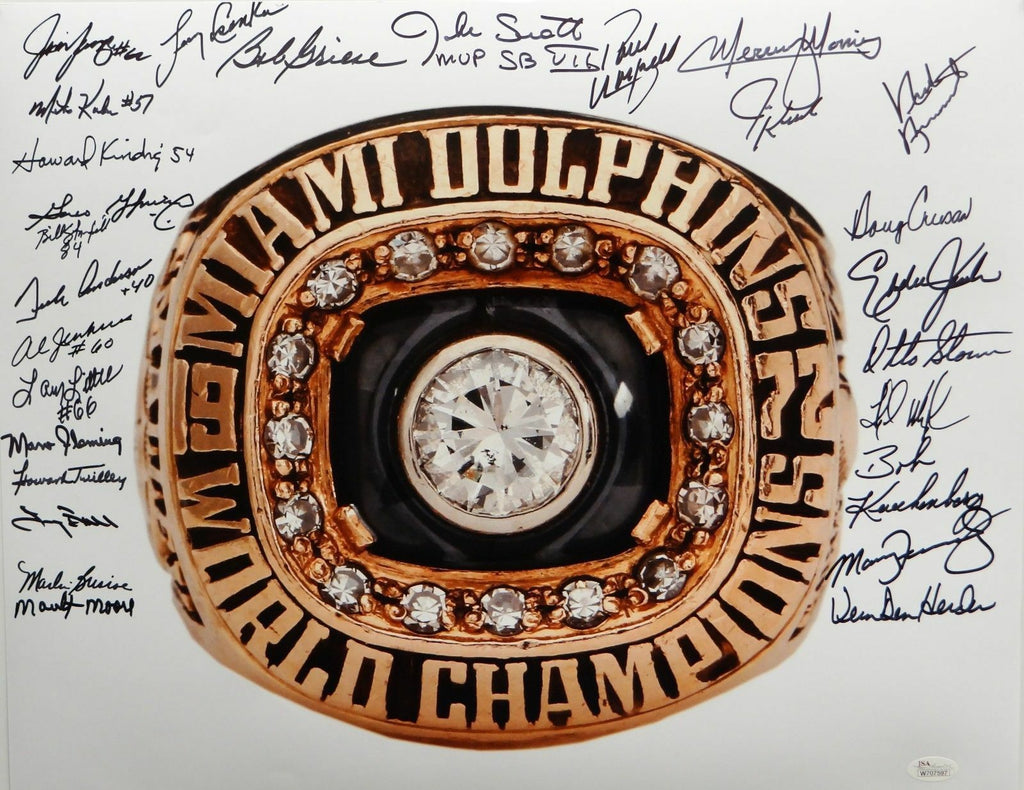 Larry Csonka
Bob Griese
Jake Scott
MVP SB VII
Paul
Warfield
Mercury Morris
Jim Langer #62
Mike Kolen #57
Howard Kindig 54
Bill Stanfill
84
Dick Anderson
#40
Al Jenkins
#60
Larry Little
#66
Marv Fleming
Howard Twilley
Marlin Briscoe
Maulty Moore
J. Kiick
Doug Crusan
Eddie Jenkins
Otto Stowe
Bob
Kuechenberg
Manny Fernandez
Vern Den Herder
MIAMI DOLPHINS
1972
WORLD CHAMPIONS
JSA
W707597